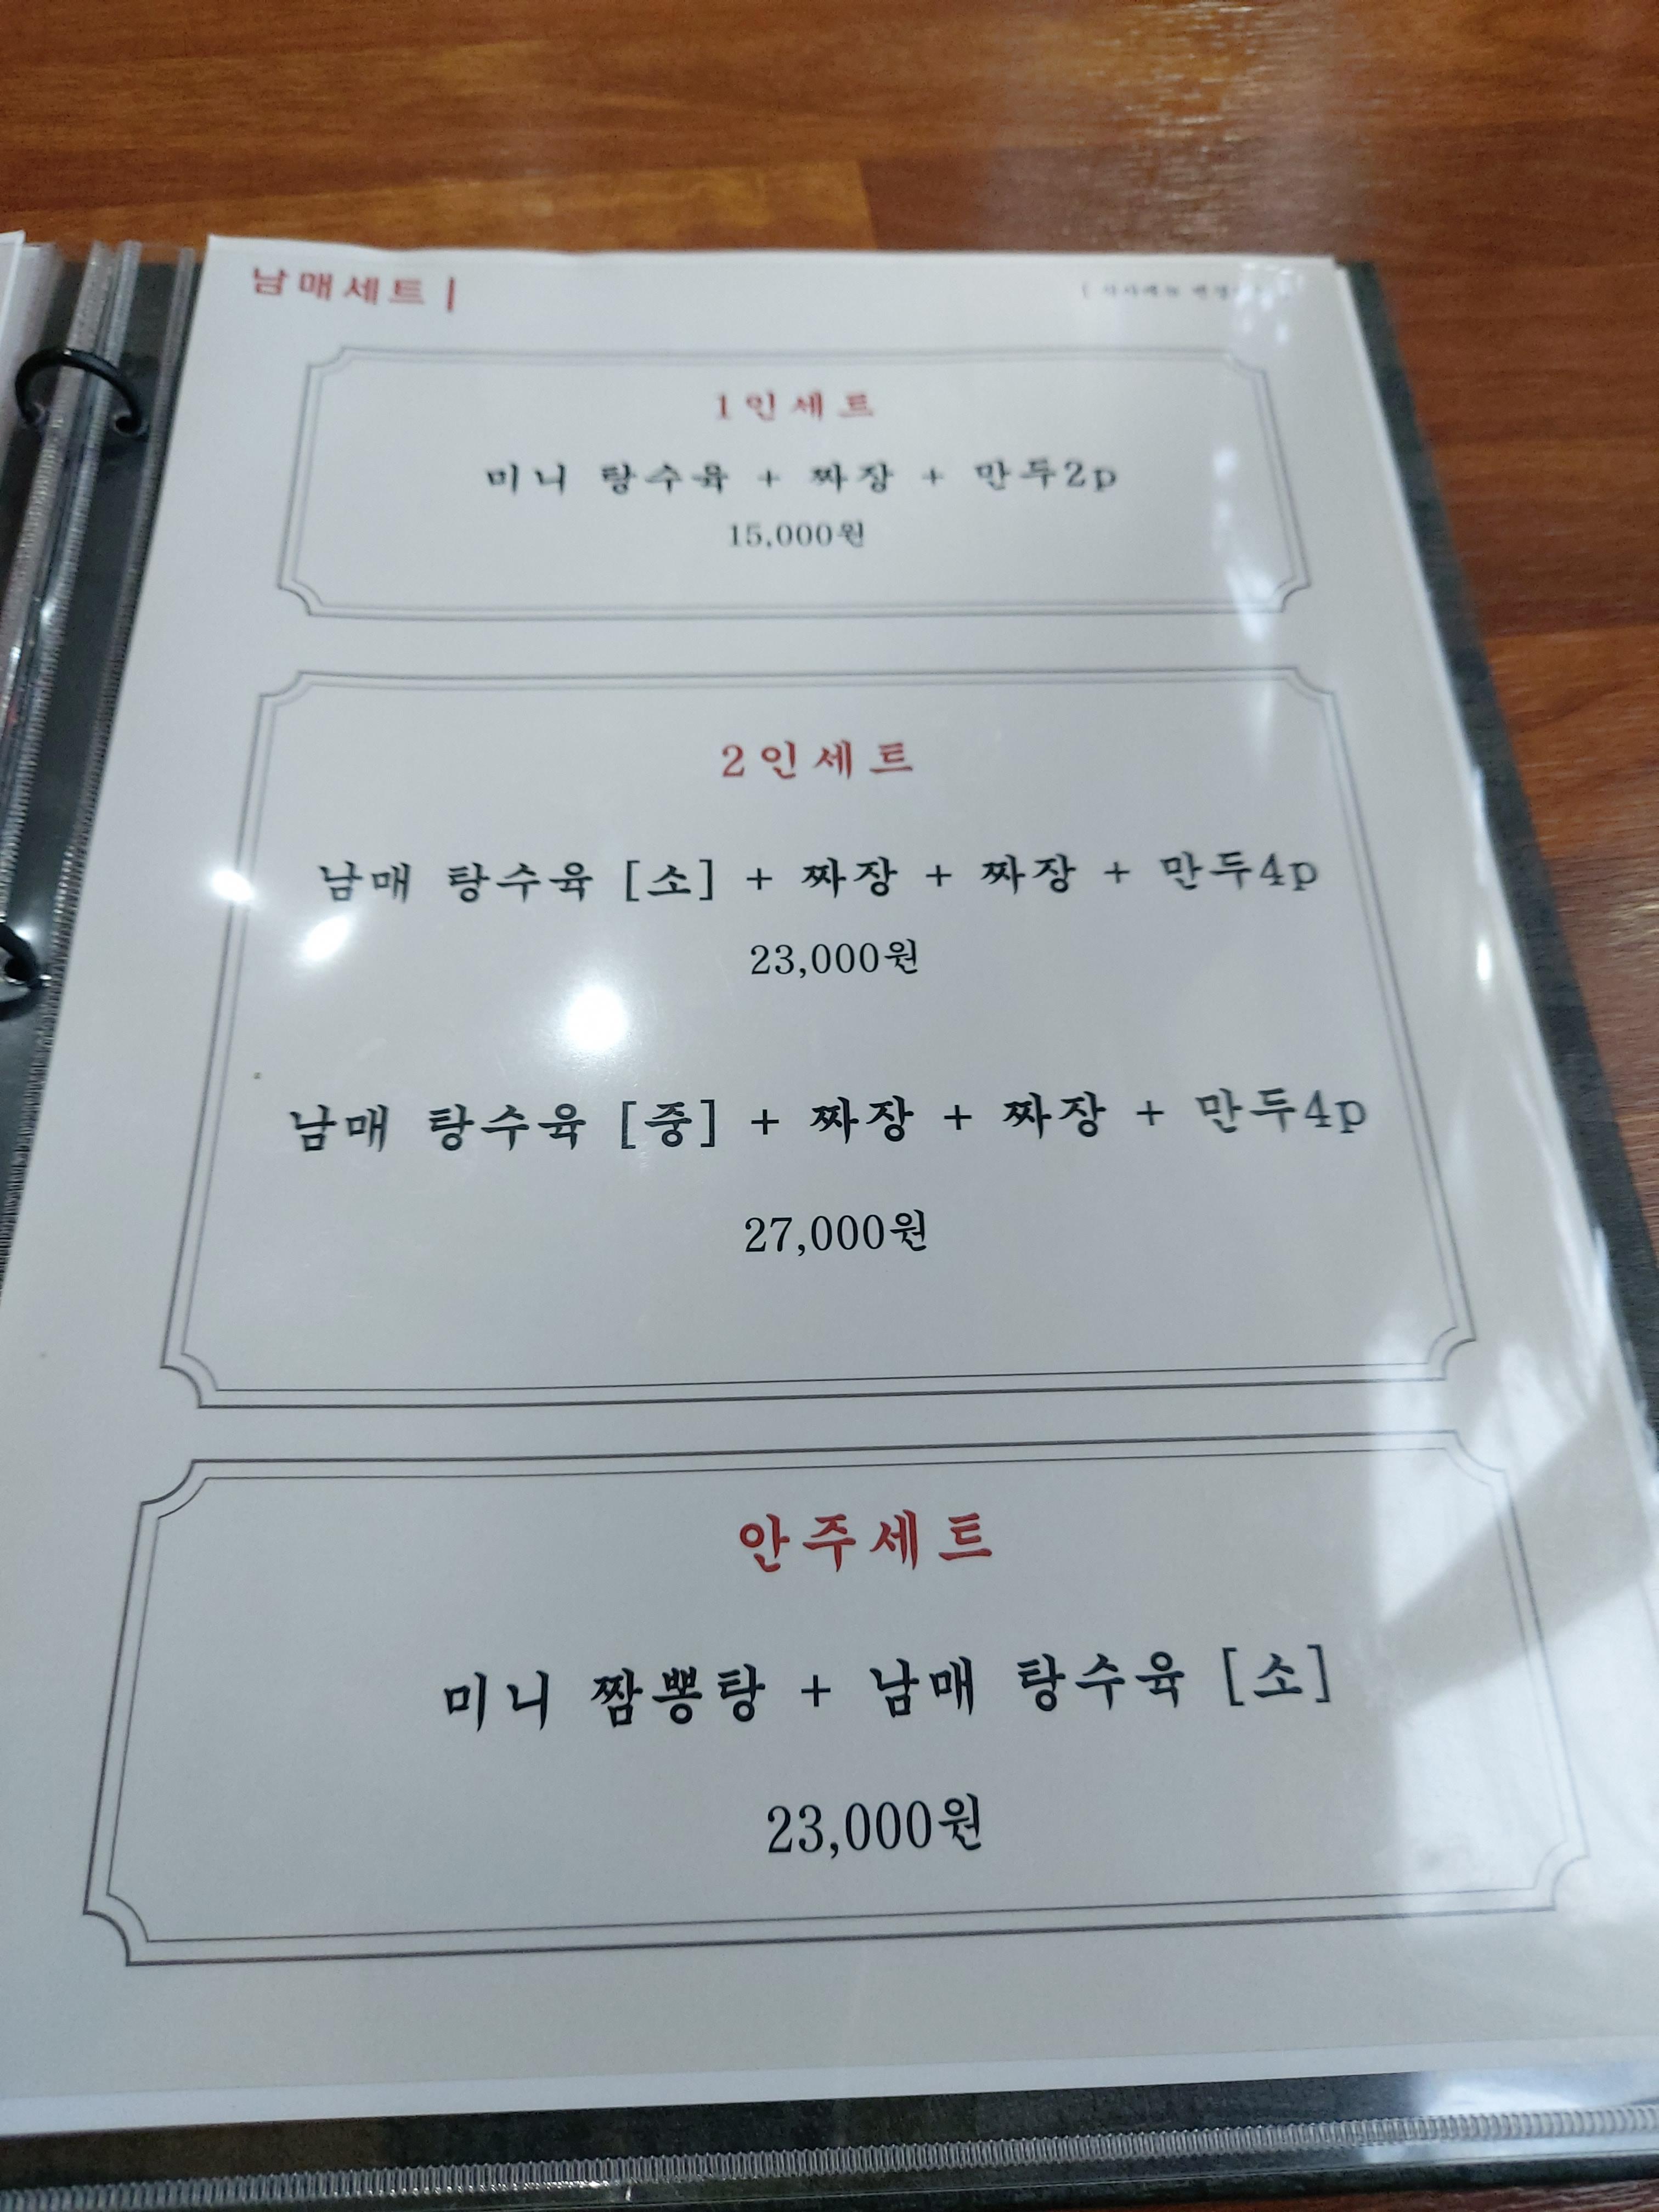 남매세트 |
1인세트
미니 탕수육 + 짜장 + 만두2p
15,000원
2인세트
남매 탕수육 [소] + 짜장 + 짜장 + 만두4p
23,000원
남매 탕수육 [중] + 짜장 + 짜장 + 만두4p
27,000원
안주세트
미니 짬뽕탕 + 남매 탕수육 [소]
23,000원